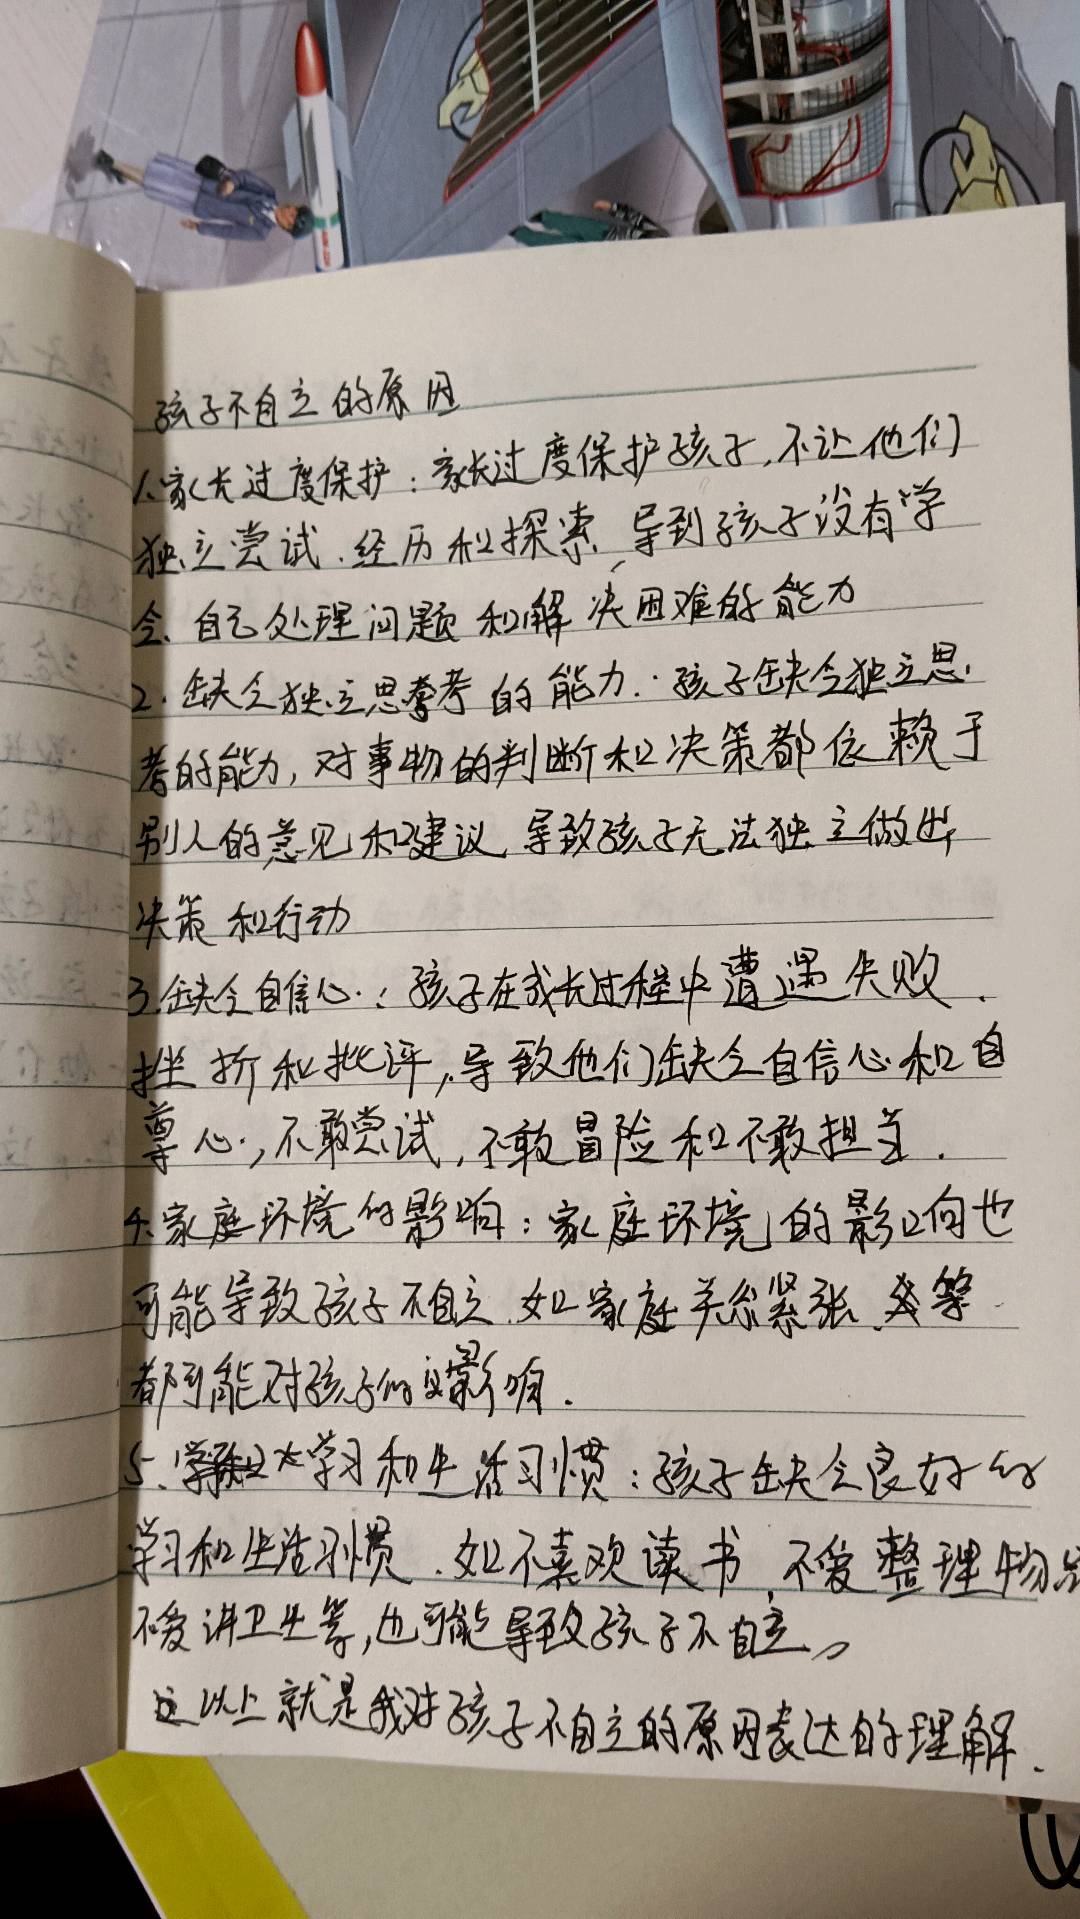 孩子不自立的原因
1.家长过度保护：家长过度保护孩子,不让他们
独立尝试、经历和探索、导到孩子没有学
会、自己处理问题和解决困难的能力
2.缺乏独立思考的能力：孩子缺乏独立思
考的能力,对事物的判断和决策都依赖于
别人的意见和建议,导致孩子无法独立做出
决策和行动
3.缺乏自信心：孩子在成长过程中遭遇失败、
挫折和批评,导致他们缺乏自信心和自
尊心,不敢尝试,不敢冒险和不敢担当.
4.家庭环境的影响：家庭环境的影响也
可能导致孩子不自立.如家庭关系紧张、等
都可能对孩子的影响.
5.学习和生活习惯：孩子缺乏良好的
学习和生活习惯.如不喜欢读书,不爱整理物品
不爱讲卫生等,也可能导致孩子不自立。
以上就是我对孩子不自立的原因表达的理解.